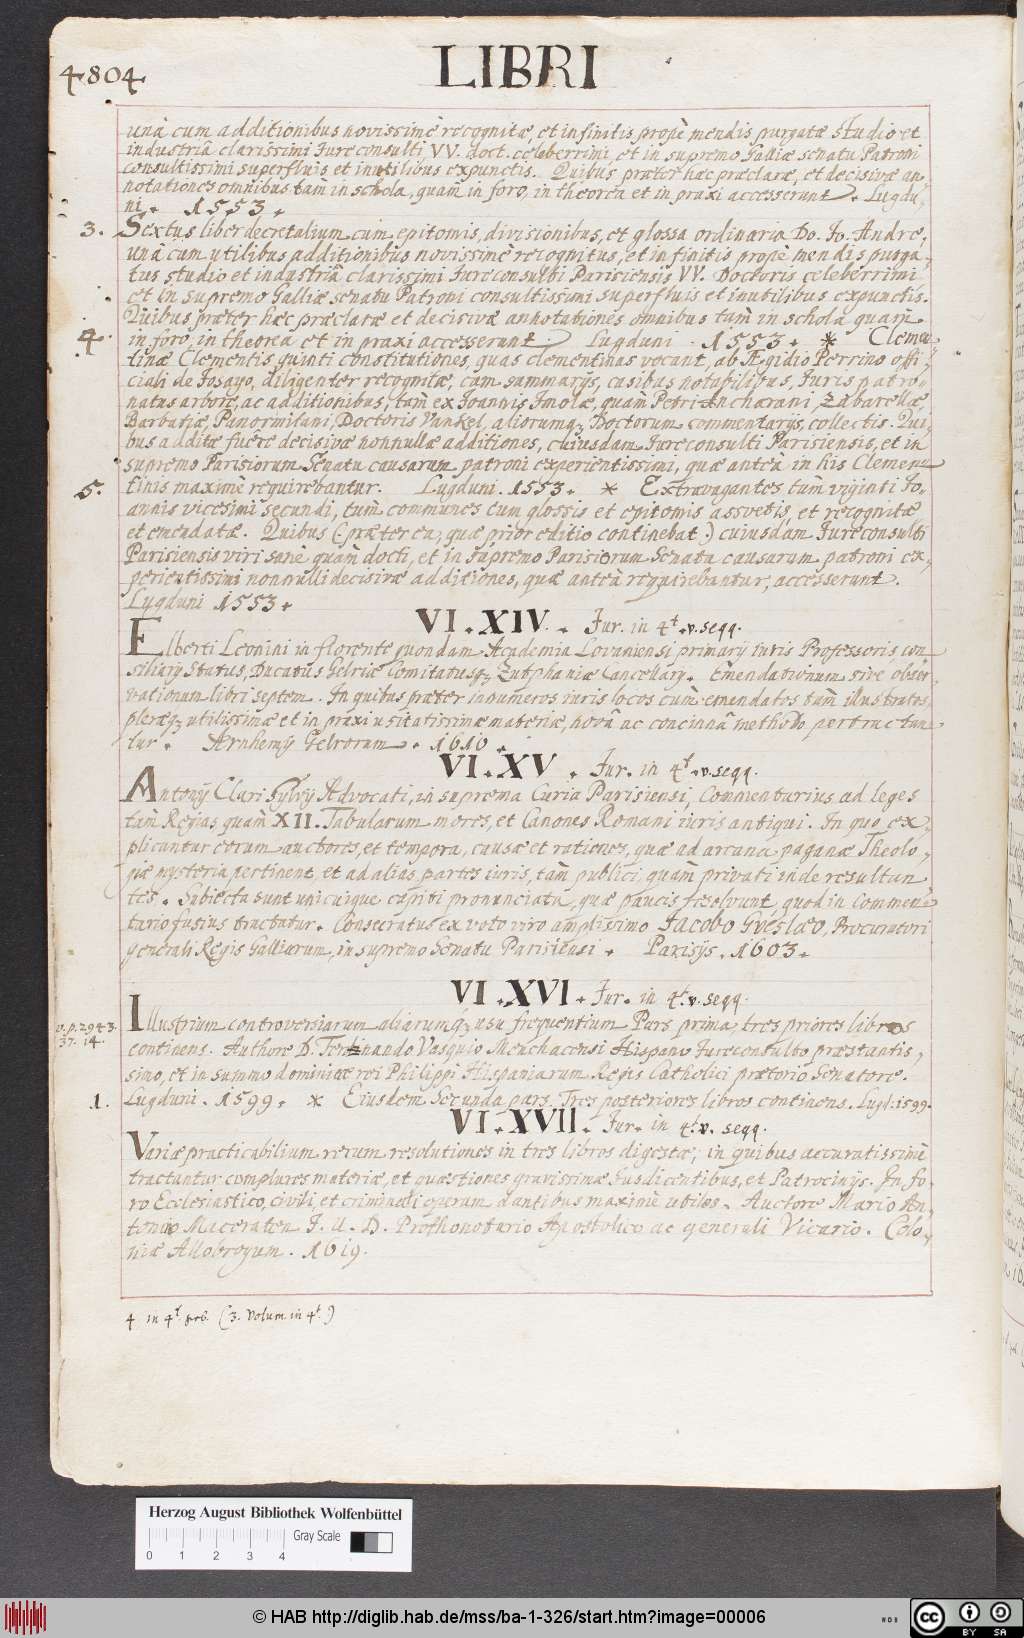 4804
LIBRI
unà cum additionibus novissimè recognitæ, et infinitis propè mendis purgatæ studio et
industriâ clarissimi Jureconsulti VV. doct. celeberrimi, et in supremo Galliæ senatu Patroni
consultissimi superfluis et inutilibus expunctis. Quibus præter hæc præclaræ, et decisivæ an-
notationes omnibus tàm in schola, quàm in foro, in theorea et in praxi accesserunt. Lugdu-
ni. 1553.
3. Sextus liber decretalium cum epitomis, divisionibus, et glossa ordinaria Do. Jo. Andre,
unà cum utilibus additionibus novissimè recognitus, et infinitis propè mendis purga-
tus studio et industriâ clarissimi Jureconsulti Parisiensis VV. Doctoris celeberrimi
et in supremo Galliæ senatu Patroni consultissimi superfluis et inutilibus expunctis.
Quibus præter hæc præclaræ et decisivæ annotationes omnibus tùm in scholâ quàm
4. in foro, in theorea et in praxi accesserunt. Lugduni. 1553. * Clemen-
tinæ Clementis quinti constitutiones, quas clementinas vocant, ab Ægidio Perrino offi-
ciali de Josayo, diligenter recognitæ, cum summarijs, casibus notabilibus, Juris patro-
natus arbore, ac additionibus, tàm ex Joannis Imolæ, quàm Petri Ancharani, Zabarellæ
Barbatiæ, Panormitani, Doctoris Vunkel, aliorumq; Doctorum commentarijs, collectis. Qui-
bus additæ fuêre decisivæ nonnullæ additiones, cuiusdam Jureconsulti Parisiensis, et in
supremo Parisiorum Senatu causarum patroni experientissimi, quæ anteà in his Clemen-
5. tinis maximè requirebantur. Lugduni. 1553. * Extravagantes tùm viginti Jo-
annis vicesimi secundi, tùm communes cum glossis et epitomis assuetis, et recognitæ
et emendatæ. Quibus (: præter ea, quæ prior editio continebat :) cuiusdam Jureconsulti
Parisiensis viri sanè quàm docti, et in supremo Parisiorum Senatu causarum patroni ex-
perientissimi nonnulli decisivæ additiones, quæ anteà requirebantur, accesserunt.
Lugduni 1553.
VI. XIV. Jur. in 4t. v. seqq.
Elberti Leonini in florente quondam Academia Lovaniensi primarij iuris Professoris, con-
siliarij Status, Ducatus Gelriæ Comitatusq; Zutphaniæ Cancellarij. Emendationum sive obser-
vationum libri septem. In quibus præter innumeros iuris locos cùm emendatos tùm illustratos,
pleræq; utilissimæ et in praxi usitatissimæ materiæ, novâ ac concinnâ methodo pertractan-
tur. Arnhemij Gelrorum. 1610.
VI. XV. Jur. in 4t. v. seqq.
Antonij Clari Sylvij Advocati, in suprema Curia Parisiensi, Commentarius ad leges
tàm Regias quàm XII. Tabularum mores, et Canones Romani iuris antiqui. In quo ex-
plicantur eorum auctores, et tempora, causæ et rationes, quæ ad arcana paganæ Theolo-
giæ mysteria pertinent et ad alias partes iuris, tàm publici, quàm privati inde resultan
tes. Subiecta sunt unicuique capiti pronunciata, quæ paucis resolvunt quod in Commen-
tario fusius tractatur. Consecratus ex voto viro amplissimo Jacobo Gveslæo, Procuratori
generali Regis Galliarum, in supremo Senatu Parisiensi. Parisijs. 1603.
VI. XVI. Jur. in 4t. v. seqq.
v. p. 2943.
37. 14.
Illustrium controversiarum aliarumq; usu frequentium Pars prima, tres priores libros
continens. Authore D. Ferdinando Vasquio Menchacensi Hispano Jureconsulto præstantis-
simo, et in summo dominicæ rei Philippi Hispaniarum Regis Catholici prætorio Senatore.
1. Lugduni. 1599. * Eiusdem Secunda pars. Tres posteriores libros continens. Lugd: 1599.
VI. XVII. Jur. in 4t. v. seqq.
Variæ practicabilium rerum resolutiones in tres libros digestæ; in quibus accuratissimè
tractantur complures materiæ, et quæstiones gravissimæ Jusdicentibus, et Patrocinijs. In fo-
ro Ecclesiastico, civili, et criminali operam dantibus maximè utiles. Auctore Mario An-
tonio Maceraten J. U. D. Prothonotario Apostolico ac generali Vicario. Colo-
niæ Allobrogum. 1619.
4 in 4t (3. Volum. in 4t.)
Herzog August Bibliothek Wolfenbüttel
Gray Scale
0 1 2 3 4
© HAB http://diglib.hab.de/mss/ba-1-326/start.htm?image=00006
WDB
cc BY SA